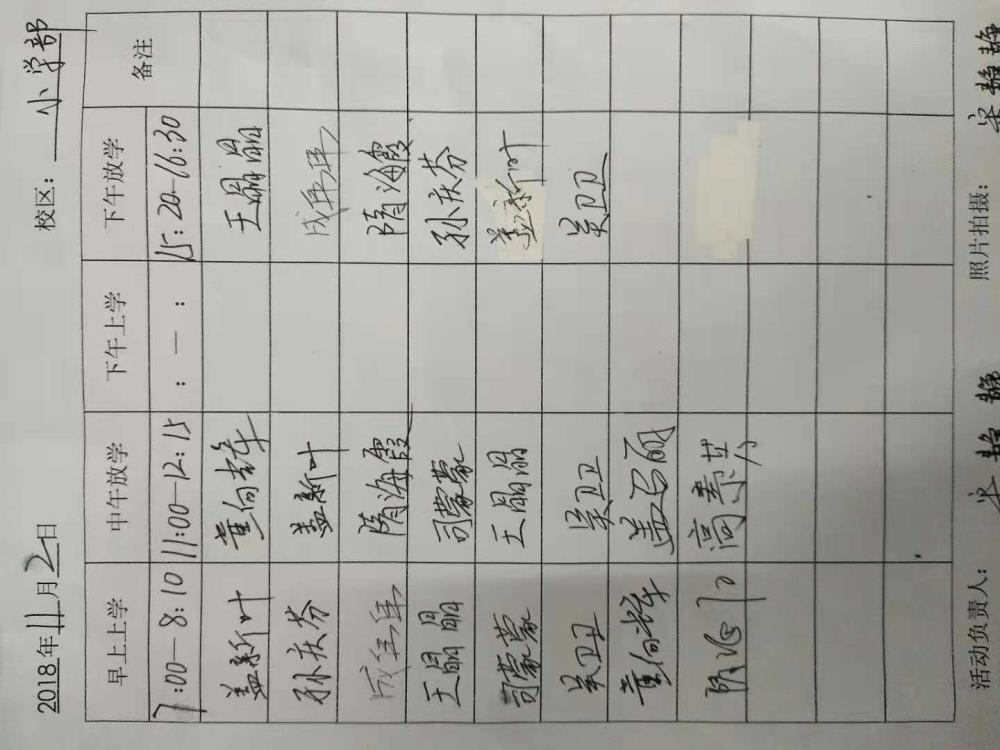 校区：小学部
2018年11月2日
早上上学 中午放学 下午上学 下午放学 备注
7:00—8:10 11:00—12:15 : — : 15:20—16:30
盖新叶 董向荣 王晶晶
孙庆芬 盖新叶
隋海霞 隋海霞
王晶晶 司蒙蒙 孙庆芬
司蒙蒙 王晶晶 盖新叶
吴卫卫 吴卫卫 吴卫卫
董向荣 盖丽
高秀芬
活动负责人：宋静静 照片拍摄：宋静静